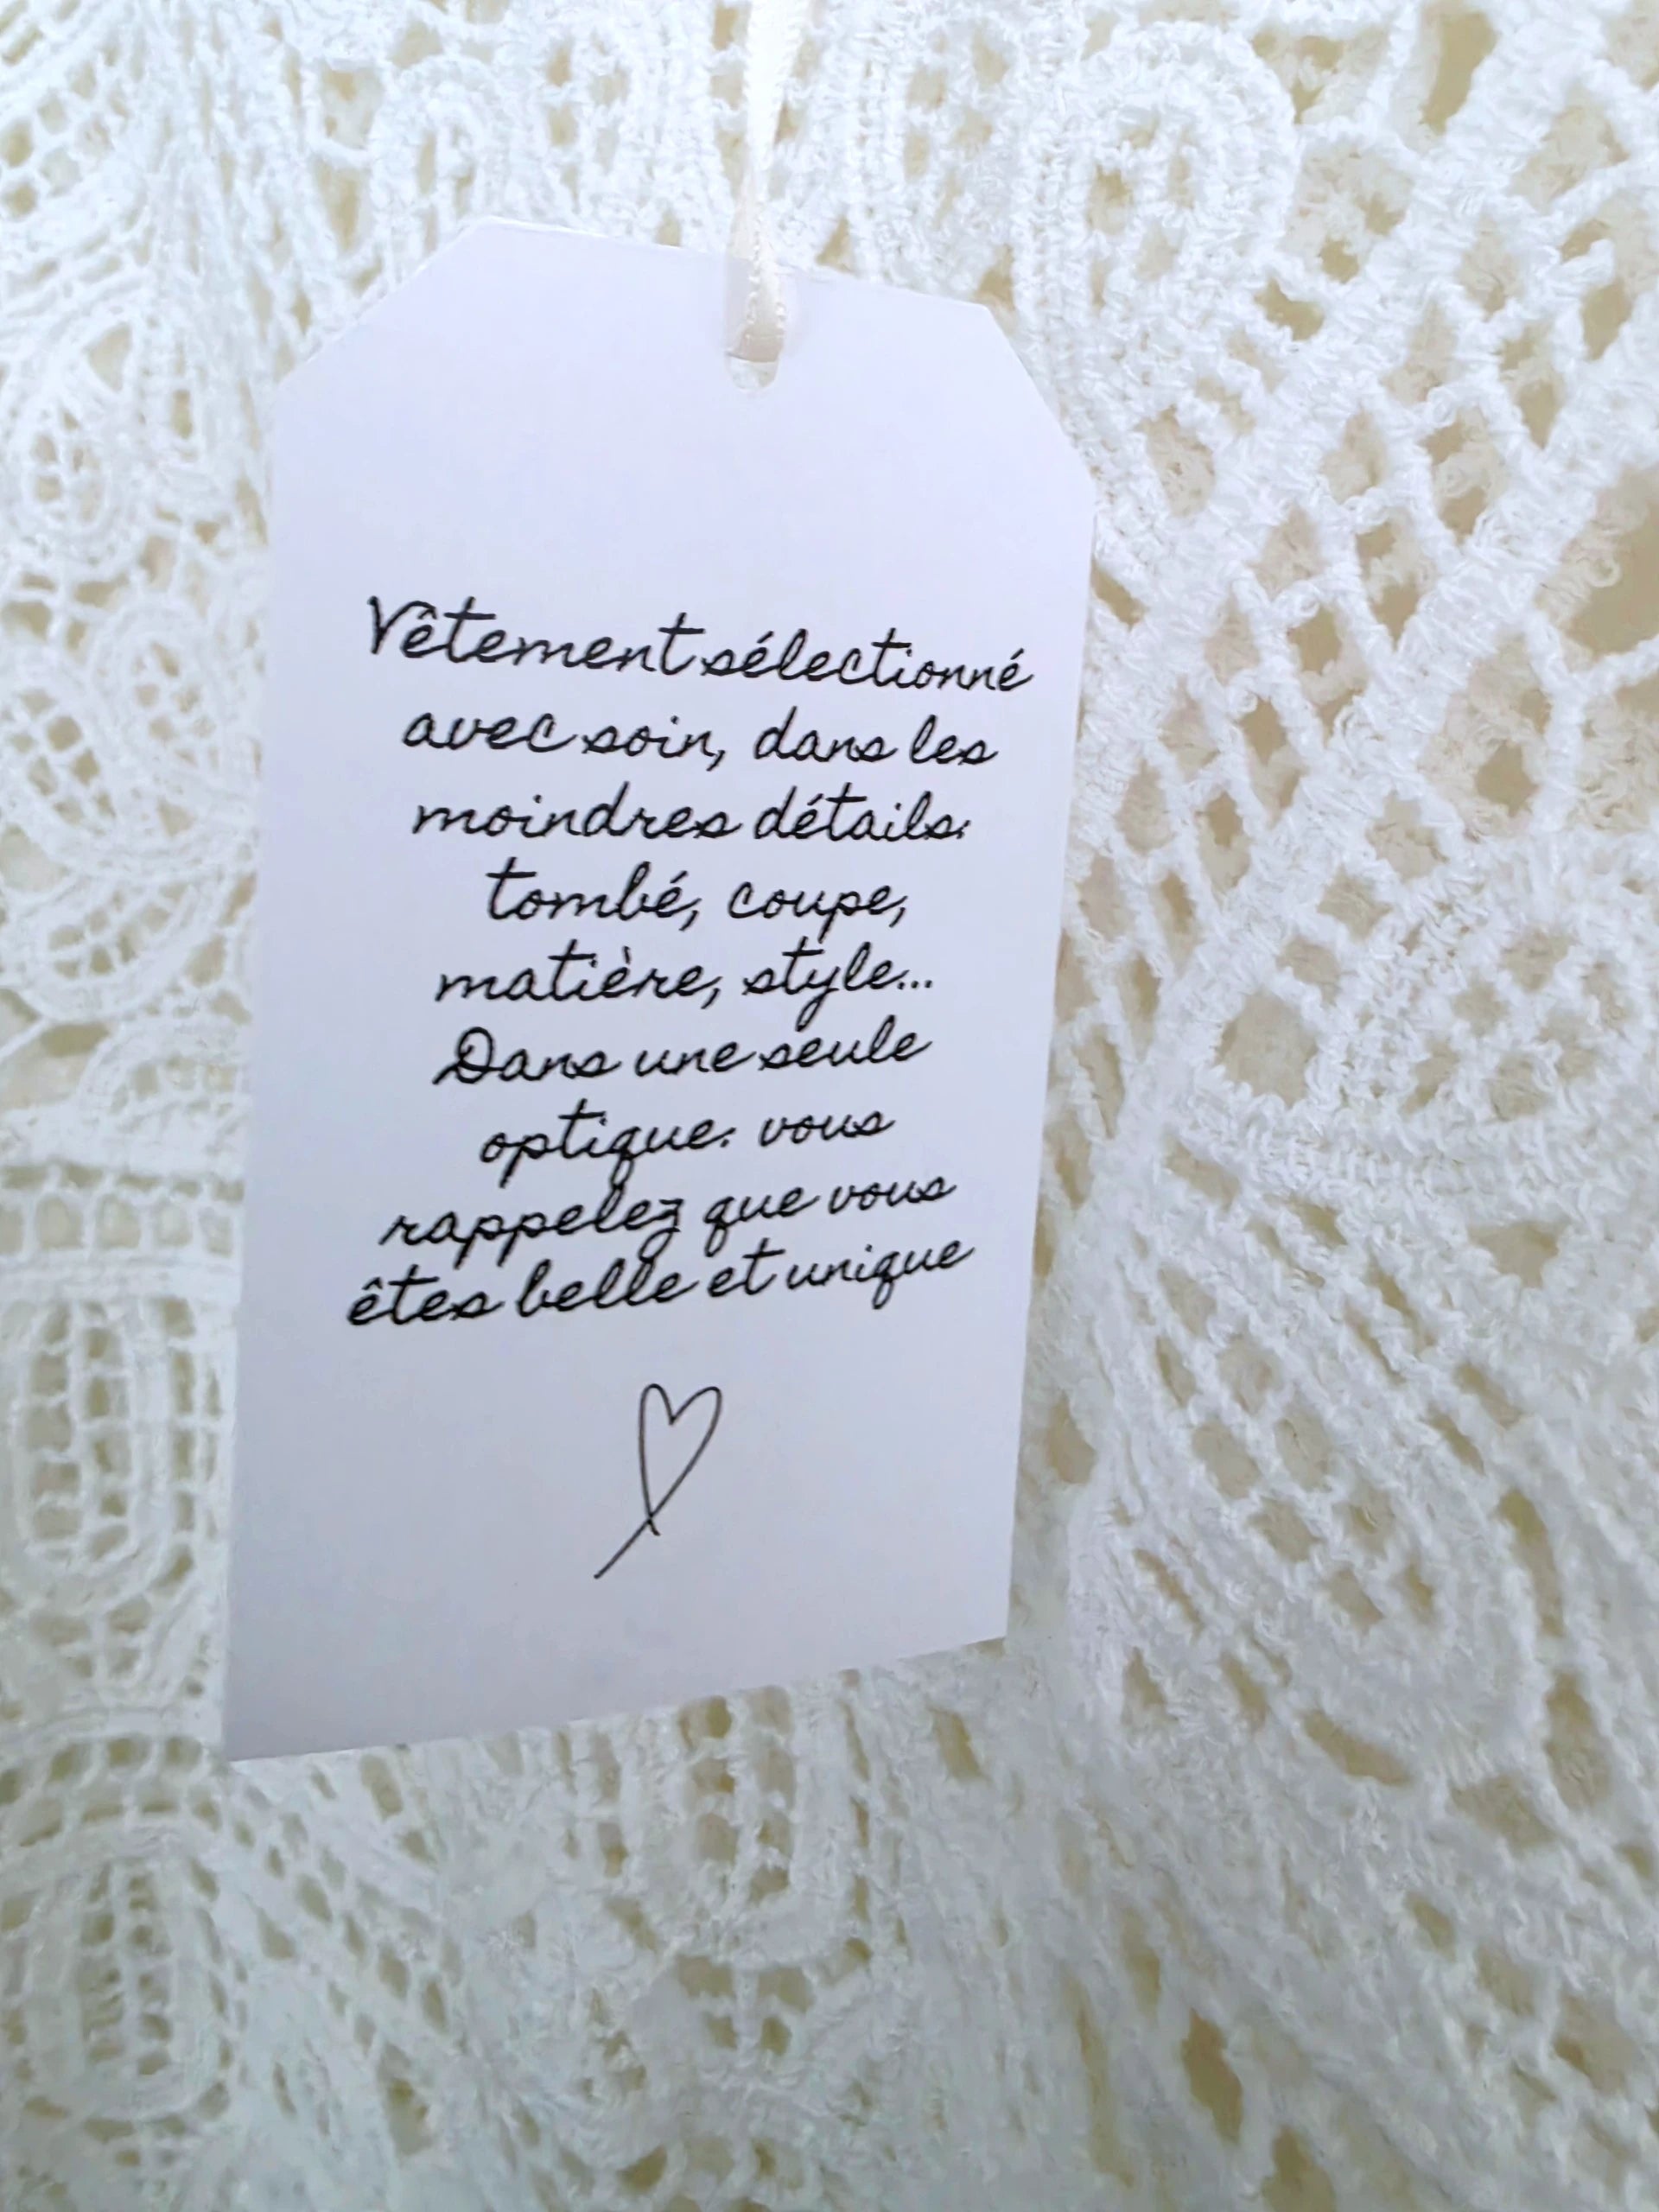 Vêtement sélectionné
avec soin, dans les
moindres détails:
tombé, coupe,
matière, style...
Dans une seule
optique: vous
rappelez que vous
êtes belle et unique